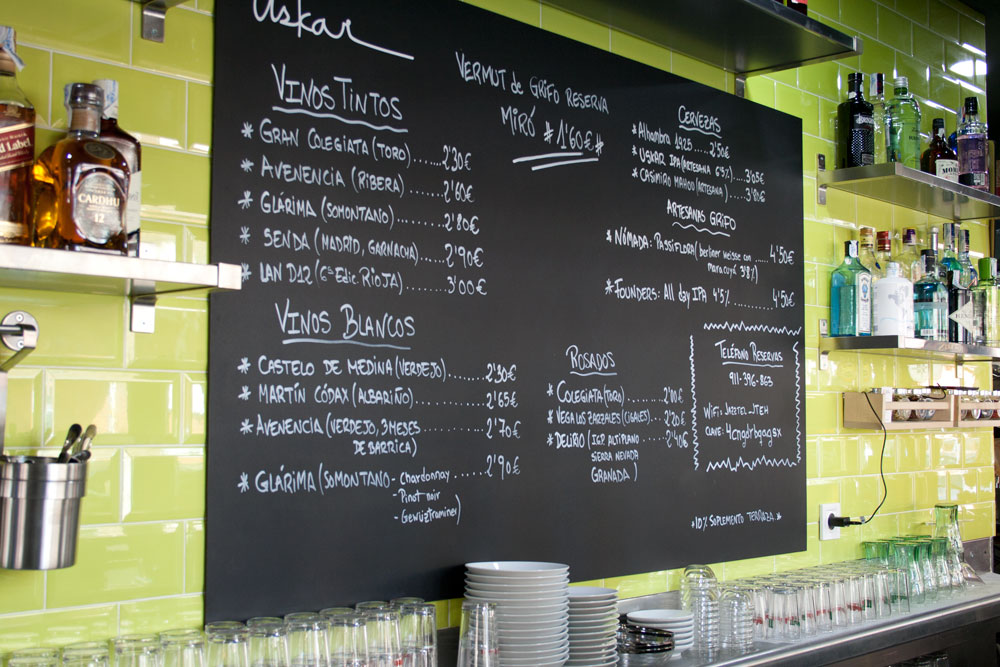 Uskar
VINOS TINTOS
* GRAN COLEGIATA (TORO) ..... 2'30€
* AVENENCIA (RIBERA) ....... 2'60€
* GLÁRIMA (SOMONTANO) ....... 2'80€
* SENDA (MADRID, GARNACHA) ..... 2'90€
* LAN D12 (6ª Edic. RIOJA) ...... 3'00€
VINOS BLANCOS
* CASTELO DE MEDINA (VERDEJO) ...... 2'30€
* MARTÍN CÓDAX (ALBARIÑO) ........ 2'65€
* AVENENCIA (VERDEJO, 3 MESES ..... 2'70€
DE BARRICA)
* GLÁRIMA (SOMONTANO - Chardonnay ..... 2'90€
- Pinot noir
- Gewüztraminer)
VERMUT de GRIFO RESERVA
MIRÓ #1'60€#
CERVEZAS
* Alhambra 1925 ..... 2'50€
* USKAR IPA (ARTESANA 6'5%) ... 3'65€
* CASIMIRO MAHOU (ARTESANA) ... 3'80€
ARTESANAS GRIFO
* NÓMADA: PASSIFLORA (berliner weisse con ..... 4'50€
maracuyá 3'8%)
* FOUNDERS: All day IPA 4'5% ......... 4'50€
ROSADOS
* COLEGIATA (TORO) ...... 2'10€
* VEGA LOS ZARZALES (CIGALES) .... 2'20€
* DELIRIO (I.G.P. ALTIPLANO ..... 2'40€
SIERRA NEVADA
GRANADA)
TELÉFONO RESERVAS
911-396-863
WIFI: JAZZTEL_ITEH
CLAVE:
*10% SUPLEMENTO TERRAZA *
Red Label
CARDHU
12